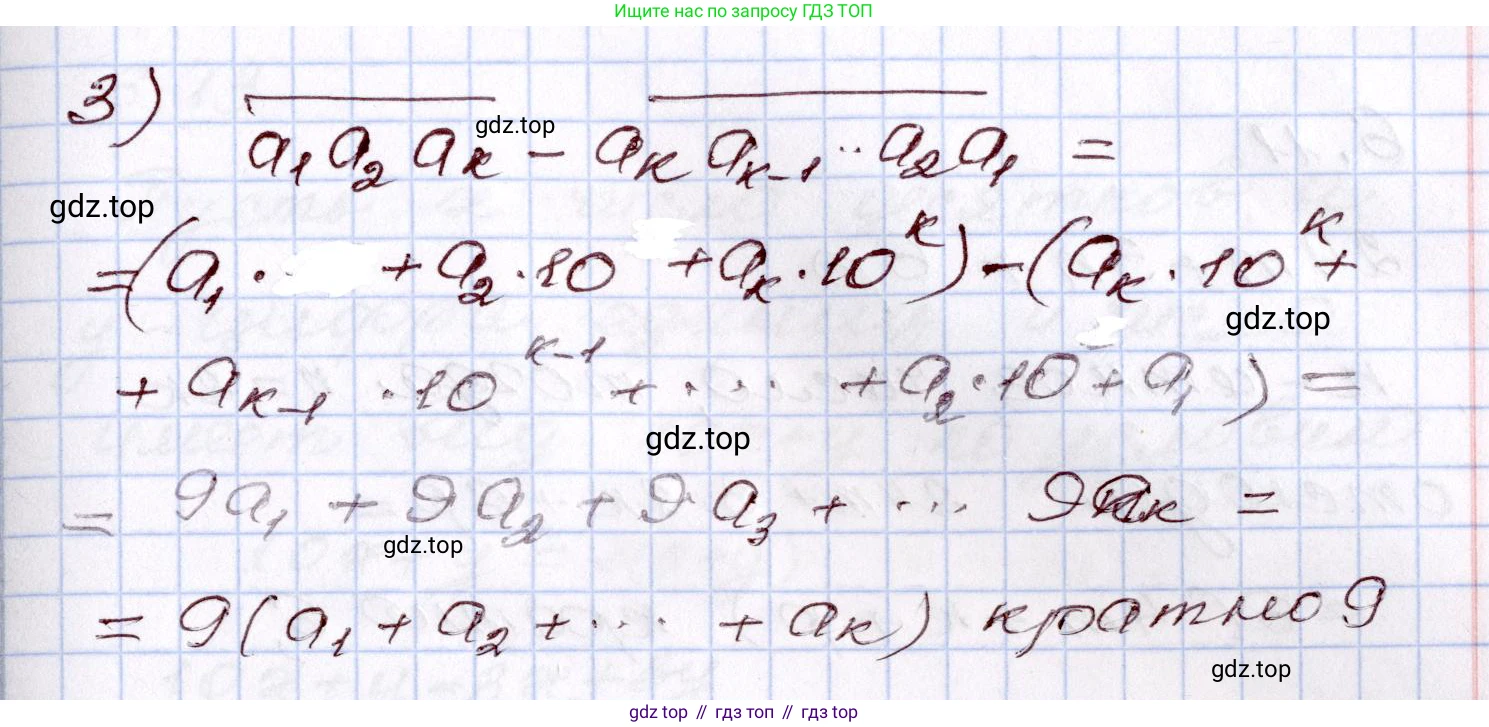 Ищите нас по запросу ГДЗ ТОП
3) a₁a₂aₖ - aₖaₖ₋₁..a₂a₁ =
gdz.top
gdz.top
=(a₁· + a₂·10 + aₖ·10ᵏ) - (aₖ·10ᵏ+
gdz.top
+ aₖ₋₁·10ᵏ⁻¹ + ... + a₂·10 + a₁) =
gdz.top
= 9a₁ + 9a₂ + 9a₃ + ... 9aₖ =
gdz.top
= 9(a₁ + a₂ + ... + aₖ) кратно 9
gdz.top
gdz top // гдз топ // gdz top